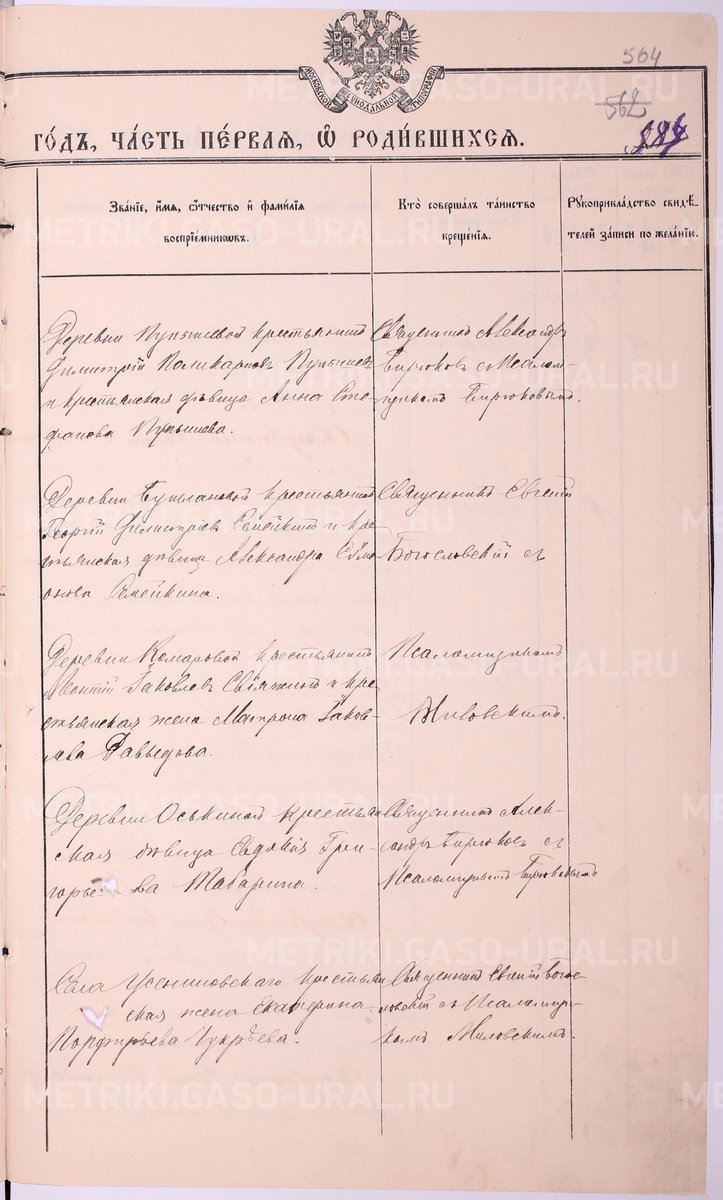 564
562
МОСКОВСКОЙ СѴНОДАЛЬНОЙ ТИПОГРАФІИ
ГО́ДЪ, ЧА́СТЬ ПЕ́РВАЯ, Ѽ РОДИ́ВШИХСЯ.
Зва́нїе, и҆́мѧ, ѻ҆́тчество и҆ фами́лїѧ
воспрїе́мниковъ.
Кто̀ соверша́лъ та́инство
креще́нїѧ.
Рꙋкоприкла́дство свидѣ́-
телей за́писи по жела́нїю.
Деревни Пупышевой крестьянинъ
Димитрій Поликарповъ Пупышевъ
и крестьянская дѣвица Анна Сте-
фанова Пупышева.
Священникъ Александръ
Бирюковъ съ Псалом-
щикомъ Бирюковымъ.
Деревни крестьянинъ
Георгій Димитріевъ и кре-
стьянская дѣвица Александра Симо
нова
Священникъ Евгеній
Богословскій съ
Деревни Комаровой крестьянинъ
Леонтій Іаковлевъ и кре
стьянская жена Матрона Іаков-
лева Давыдова.
Псаломщикомъ
Миловскимъ.
Деревни Оськиной крестьян
ская дѣвица Евдокія Гри-
горьева Табарина.
Священникъ Алек-
сандръ Бирюковъ съ
Псаломщикомъ Бирюковымъ
Села Усениновскаго крестьян
ская жена Екатерина
Порфирьева Чукрѣева.
Священникъ Евгеній Бого-
словскій съ Псаломщи-
комъ Миловскимъ.
METRIKI.GASO-URAL.RU